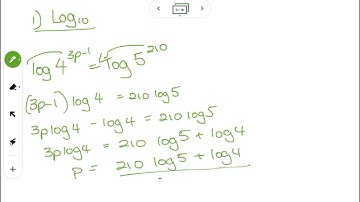 1) Log₁₀
log 4^(3p-1) = log 5^210
(3p-1) log 4 = 210 log 5
3p log 4 - log 4 = 210 log 5
3p log 4 = 210 log 5 + log 4
p = 210 log 5 + log 4